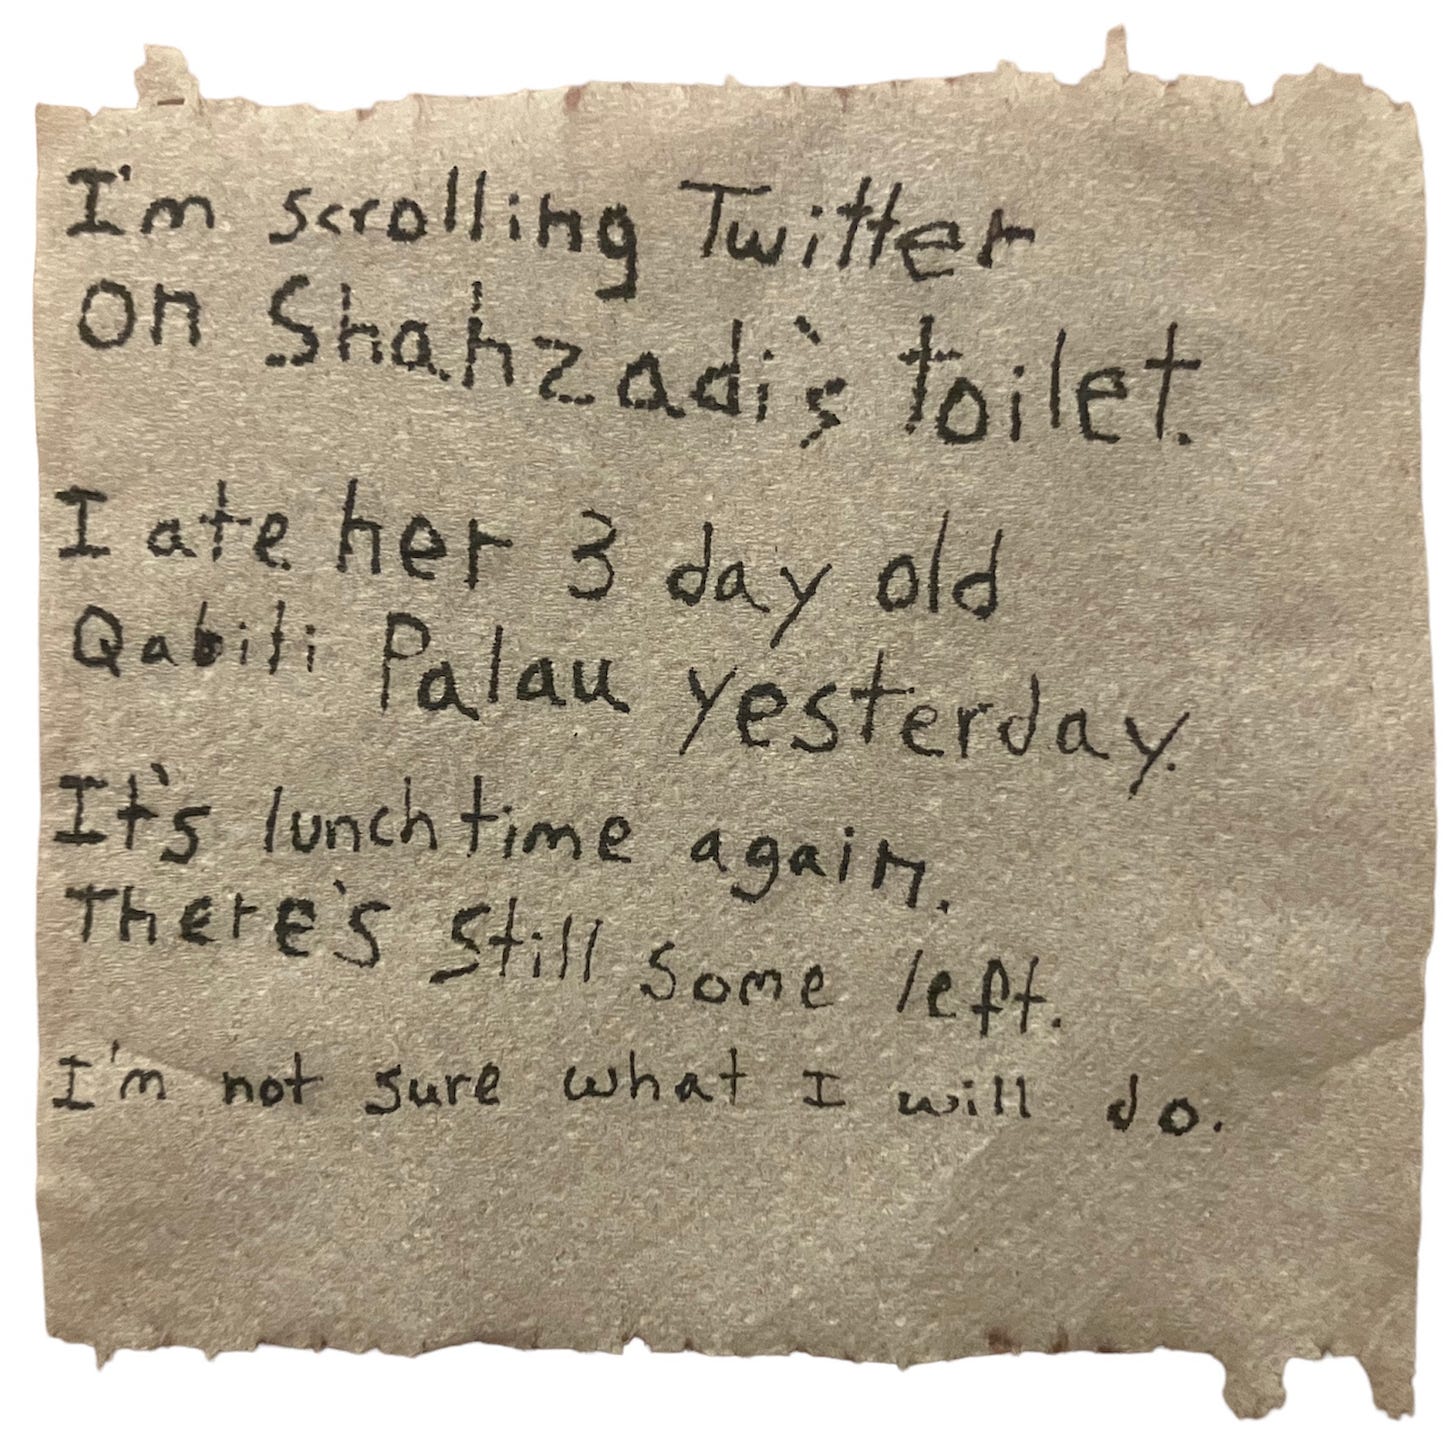 I'm scrolling Twitter
on Shahzadi's toilet.
I ate her 3 day old
Qabili Palau yesterday.
It's lunchtime again.
There's still some left.
I'm not sure what I will do.